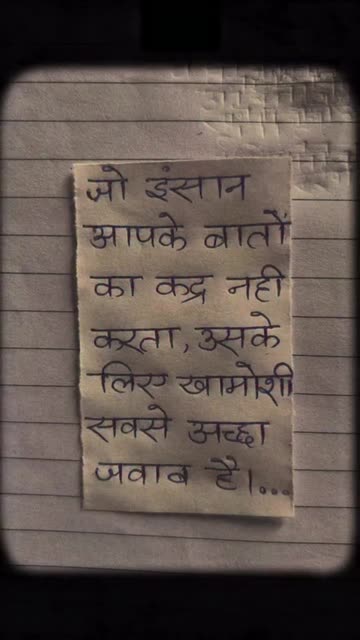 जो इंसान
आपके बातों
का कद्र नही
करता, उसके
लिए खामोशी
सबसे अच्छा
जवाब है।...